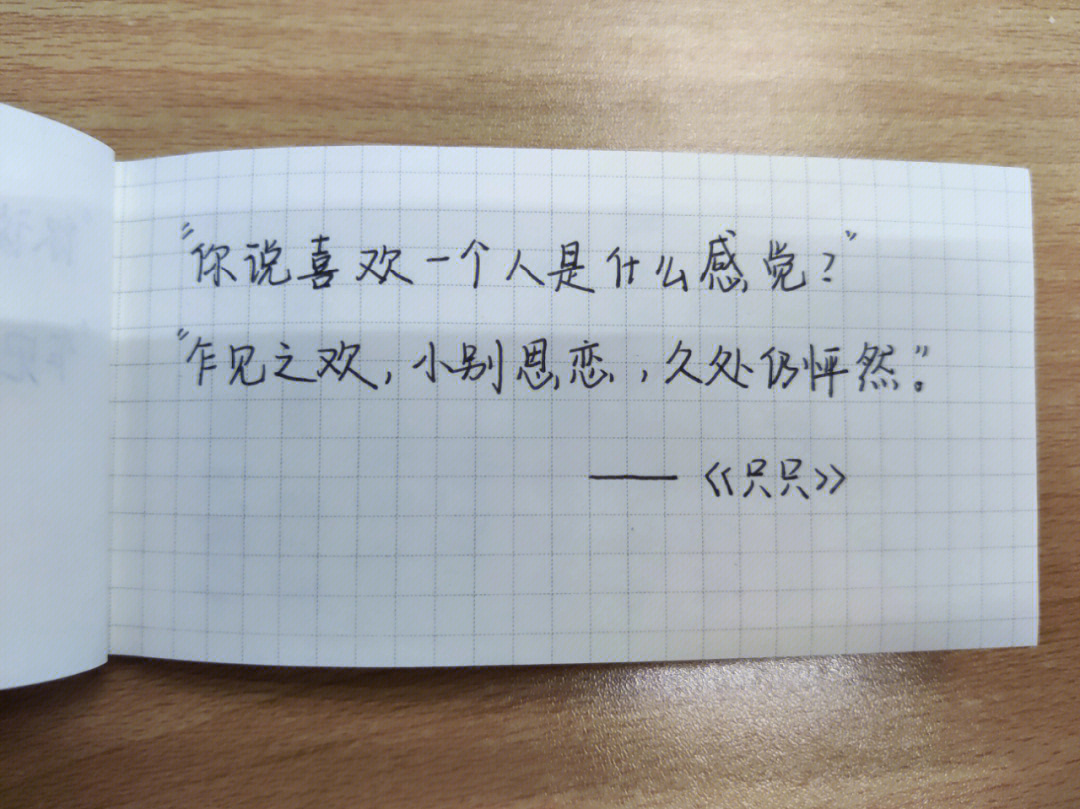 “你说喜欢一个人是什么感觉？”
“乍见之欢，小别思恋，久处仍怦然。”
——《只只》